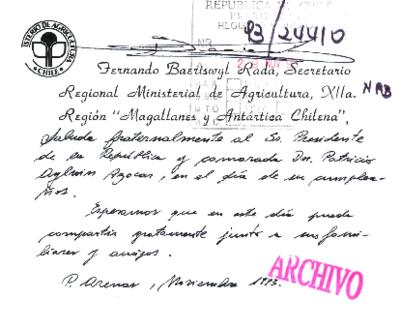 REPUBLICA DE CHILE
93/24410
MINISTERIO DE AGRICULTURA
CHILE
Fernando Baeriswyl Rada, Secretario
Regional Ministerial de Agricultura, XIIa.
Región "Magallanes y Antártica Chilena",
Saluda fraternalmente al Sr. Presidente
de la República y camarada Dn. Patricio
Aylwin Azocar, en el día de su cumplea-
ños.
Esperamos que en este día pueda
compartir gratamente junto a sus fami-
liares y amigos.
P. Arenas, Noviembre 1993.
ARCHIVO